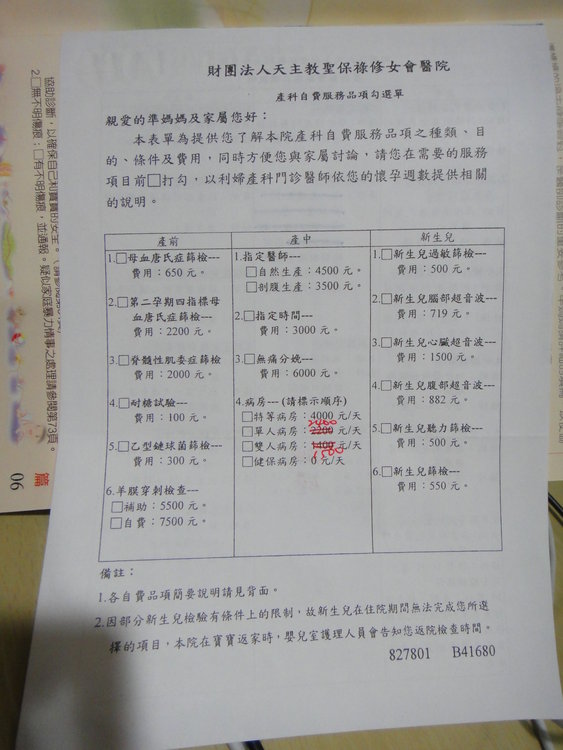 財團法人天主教聖保祿修女會醫院
產科自費服務品項勾選單
親愛的準媽媽及家屬您好：
本表單為提供您了解本院產科自費服務品項之種類、目
的、條件及費用，同時方便您與家屬討論，請您在需要的服務
項目前□打勾，以利婦產科門診醫師依您的懷孕週數提供相關
的說明。
產前
1.□母血唐氏症篩檢---
費用：650 元。
2.□第二孕期四指標母
血唐氏症篩檢---
費用：2200 元。
3.□脊髓性肌委症篩檢
費用：2000 元。
4.□耐糖試驗---
費用：100 元。
5.□乙型鏈球菌篩檢---
費用：300 元。
6.羊膜穿刺檢查---
□補助：5500 元。
□自費：7500 元。
產中
1.指定醫師---
□自然生產：4500 元。
□剖腹生產：3500 元。
2.□指定時間---
費用：3000 元。
3.□無痛分娩---
費用：6000 元。
4.病房---(請標示順序)
□特等病房：4000 元/天
2400
□單人病房：2200 元/天
□雙人病房：1400 元/天
1500
□健保病房：0 元/天
新生兒
1.□新生兒過敏篩檢---
費用：500 元。
2.□新生兒腦部超音波---
費用：719 元。
3.□新生兒心臟超音波---
費用：1500 元。
4.□新生兒腹部超音波---
費用：882 元。
5.□新生兒聽力篩檢---
費用：500 元。
6.□新生兒篩檢---
費用：550 元。
備註：
1.各自費品項簡要說明請見背面。
2.因部分新生兒檢驗有條件上的限制，故新生兒在住院期間無法完成您所選
擇的項目，本院在寶寶返家時，嬰兒室護理人員會告知您返院檢查時間。
827801 B41680
協助診斷，以確保自己和寶寶的安全。
2.□無不明傷痕；□有不明傷痕，並通報。疑似家庭暴力情事之處理請參閱第73頁。
篇
06